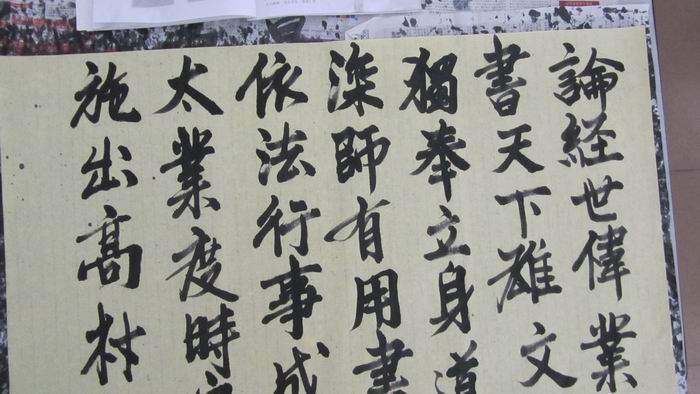 論経世偉業
書天下雄文
獨奉立身道
深師有用書
依法行事成
太業度時
施出高材